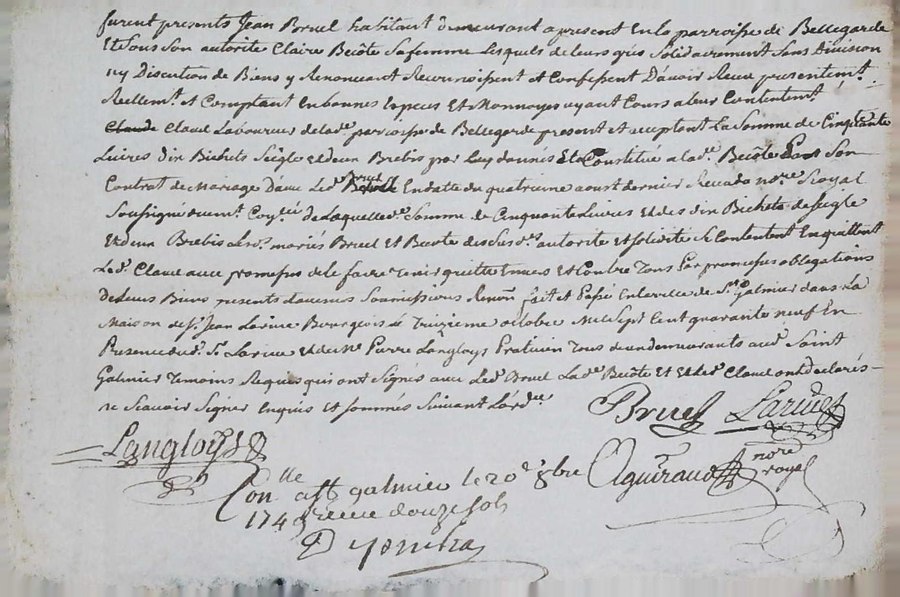 furent presents Jean Bruel habitant demeurant apresent En la parroisse de Bellegarde
Et Sous Son autorite Claire Buôte sa femme Lesquels de leurs gres Solidairement Sans Division
ny Discution de Biens y Renonceant Reconnoissent et Confessent D'avoir Receu presentemt.
Reellemt. et Comptant En bonnes Especes Et Monnoyes ayant Cours a leur Contentemt.
Claude Claud Laboureur de lade. parroisse de Bellegarde present et acceptant La Somme de Cinquante
Livres dix Bichets Seigle et d'eux Brebis par Luy donnés Et Constitué a lade. Buôte Son
Contrat de Mariage D'avec Led. Bruel En datte du quatrieme aoust dernier Receu du nore. Royal
Soussigné De Laquelle de. Somme de Cinquante Livres Et des dix Bichets de seigle
Et d'eux Brebis Lesd. mariés Bruel Et Buôte des Susd. autorite et solidite Se Contentent En quittent
Led. Claud avec promesses de le faire tenir quitte Envers Et Contre Tous Par promesses obligations
de leurs Biens presents & avenir Soumissions Renon. fait et Passé En la ville de St. Galmier dans La
Maison de Sr. Jean Larive Bourgeois Le Treizieme octobre Mil Sept Cent quarante neuf En
Presence dud. Sr. Larive Et de Me. Pierre Langloys Praticien Tous deux demeurants aud. Saint
Galmier Temoins Requis qui ont Signés avec Led. Bruel Lade. Buôte Et Led. Claud ont declarés
ne Scavoir Signer Enquis et Sommés Suivant L'orde.
Bruel Larive
Langloys
Aguiraud nore royal
Conlle a St galmier le 20e 8bre
1749 Receu douze sols